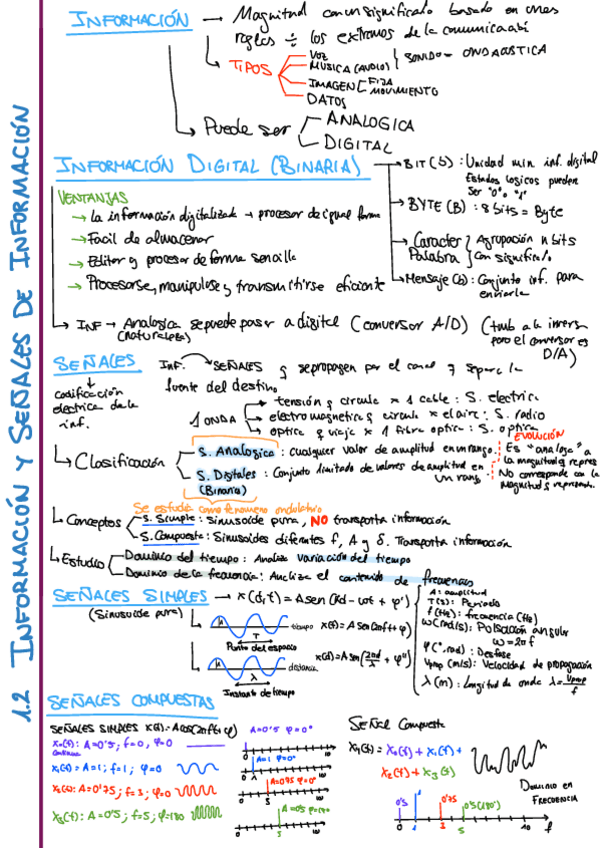 1.2 INFORMACIÓN Y SEÑALES DE INFORMACIÓN
INFORMACIÓN → Magnitud con un significado basado en unas
reglas ÷ los extremos de la comunicación
TIPOS
VOZ
MÚSICA (AUDIO)
SONIDO = ONDA ACÚSTICA
IMAGEN
FIJA
MOVIMIENTO
DATOS
Puede ser
ANALOGICA
DIGITAL
INFORMACIÓN DIGITAL (BINARIA)
BIT (b) : Unidad min. inf. digital
Estados logicos pueden
ser "0" o "1"
BYTE (B) : 8 bits = Byte
Caracter
Palabra
Agrupación n bits
con significado
Mensaje (b) : Conjunto inf. para
enviarla
VENTAJAS
→ La información digitalizada → procesar de igual forma
→ Facil de almacenar
→ Editar y procesar de forma sencilla
→ Procesarse, manipularse y transmitirse eficiente
INF → Analogica se puede pasar a digital (conversor A/D) (tmb a la inversa
(naturaleza)
pero el conversor es
D/A)
SEÑALES
Inf. SEÑALES y se propagan por el canal y separa la
fuente del destino
codificación
electrica de la
inf.
1 ONDA
tensión y circula x 1 cable : S. electrica
electromagnetica y circula x el aire : S. radio
optica y viaja x 1 fibra optica : S. optica
Clasificación
S. Analogica : cualquier valor de amplitud en un rango.
S. Digitales : Conjunto limitado de valores de amplitud en
un rang.
(Binaria)
EVOLUCIÓN
Es "analoga" a
la magnitud q repres
No corresponde con la
magnitud q representa.
Se estudia como fenomeno ondulatorio
Conceptos
S. Simple : sinusoide pura, NO transporta información
S. Compuesta : Sinusoides diferentes f, A y δ. Transporta información
Estudio
Dominio del tiempo : Analiza variación del tiempo
Dominio de la frecuencia : Analiza el contenido de frecuencias
SEÑALES SIMPLES → x(d,t) = A sen (kd - wt + φ)
(Sinusoide pura)
A : amplitud
T (s) : Periodo
f (Hz) : frecuencia (Hz)
ω (rad/s) : Pulsación angular
ω = 2πf
φ (º, rad) : Desfase
Vprop (m/s) : Velocidad de propagación
λ (m) : Longitud de onda λ = Vprop/f
A
T
tiempo
x(t) = A sen (2πft + φ)
Punto del espacio
A
λ
distancia
x(d) = A sen (2πd/λ + φ)
Instante de tiempo
SEÑALES COMPUESTAS
SEÑALES SIMPLES x(t) = A cos(2πft + φ)
x₀(t) : A = 0'5 ; f = 0, φ = 0
x₁(t) : A = 1 ; f = 1 ; φ = 0
x₂(t) : A = 0'75 ; f = 3 ; φ = 0
x₃(t) : A = 0'5 ; f = 5 ; φ = 180
A = 0'5 φ = 0°
A = 1 φ = 0°
A = 0'75 φ = 0°
A = 0'5 φ = 180°
Señal Compuesta
x₁(t) = x₀(t) + x₁(t) +
x₂(t) + x₃(t)
DOMINIO EN
FRECUENCIA
0'5
1
0'75
0'5 (180°)
0 1 3 5 10 f